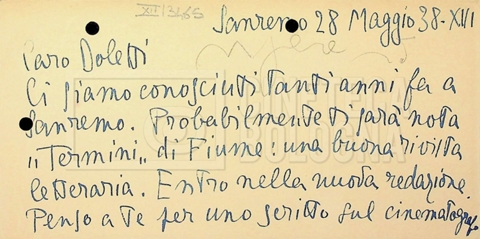 XII/3465
Sanremo 28 Maggio 38-XVI
Caro Doletti
Ci siamo conosciuti tanti anni fa a
Sanremo. Probabilmente ti sarà nota
„Termini„ di Fiume: una buona rivista
letteraria. Entro nella nuova redazione.
Penso a te per uno scritto sul cinematogr.